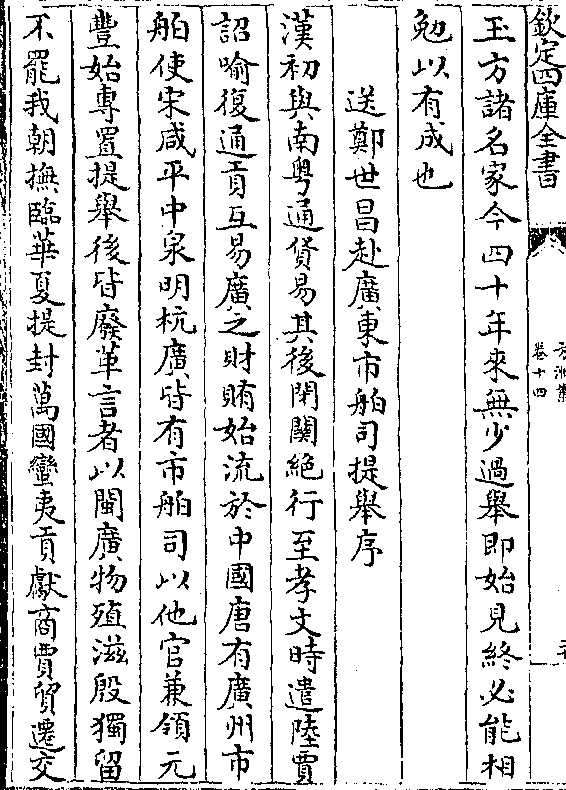 欽定四庫全書
卷十四
玉方諸名家今四十年來無少過舉即始見終必能相
勉以有成也
送鄭世昌赴廣東市舶司提舉序
漢初與南粵通貨易其後閉關絕行至孝文時遣陸賈
詔喻復通貢互易廣之財賄始流於中國唐有廣州市
舶使宋咸平中泉明杭廣皆有市舶司以他官兼領元
豐始專置提舉後皆廢革言者以閩廣物殖滋殷獨留
不罷我朝撫臨華夏提封萬國蠻夷貢獻商賈貿遷交